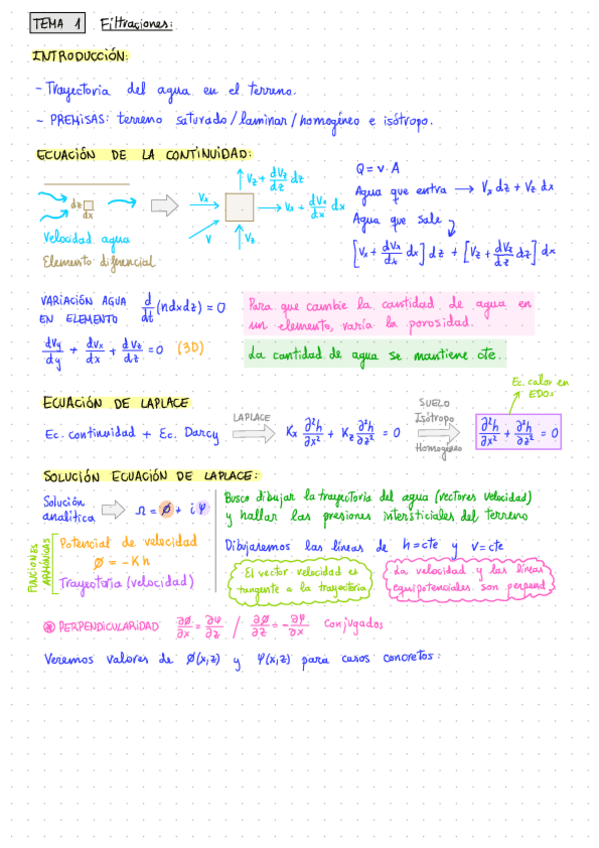 TEMA 1 Filtraciones:
INTRODUCCIÓN:
- Trayectoria del agua en el terreno.
- PREMISAS: terreno saturado/laminar/homogéneo e isótropo.
ECUACIÓN DE LA CONTINUIDAD:
dz
dx
Velocidad agua
Elemento diferencial
Vz + dVz/dz dz
Vx
Vx + dVx/dx dx
V
Vz
Q = v·A
Agua que entra → Vx dz + Vz dx
Agua que sale
[Vx + dVx/dx dx] dz + [Vz + dVz/dz dz] dx
VARIACIÓN AGUA
EN ELEMENTO
d/dt (ndxdz) = 0
Para que cambie la cantidad de agua en
un elemento, varía la porosidad.
dVy/dy + dVx/dx + dVz/dz = 0 (3D)
La cantidad de agua se mantiene cte.
Ec. calor en
EDOs
ECUACIÓN DE LAPLACE
Ec. continuidad + Ec. Darcy
LAPLACE
Kx ∂²h/∂x² + Kz ∂²h/∂z² = 0
SUELO
Isótropo
Homogéneo
∂²h/∂x² + ∂²h/∂z² = 0
SOLUCIÓN ECUACIÓN DE LAPLACE:
Solución
analítica
Ω = ϕ + i φ
FUNCIONES
ARMÓNICAS
Potencial de velocidad
ϕ = -K h
Trayectoria (velocidad)
Busco dibujar la trayectoria del agua (vectores velocidad)
y hallar las presiones intersticiales del terreno
Dibujaremos las líneas de h=cte y v=cte
El vector velocidad es
tangente a la trayectoria
La velocidad y las líneas
equipotenciales son perpend.
⊛ PERPENDICULARIDAD ∂ϕ/∂x = ∂φ/∂z / ∂ϕ/∂z = -∂φ/∂x Conjugados
Veremos valores de ϕ(x,z) y φ(x,z) para casos concretos: